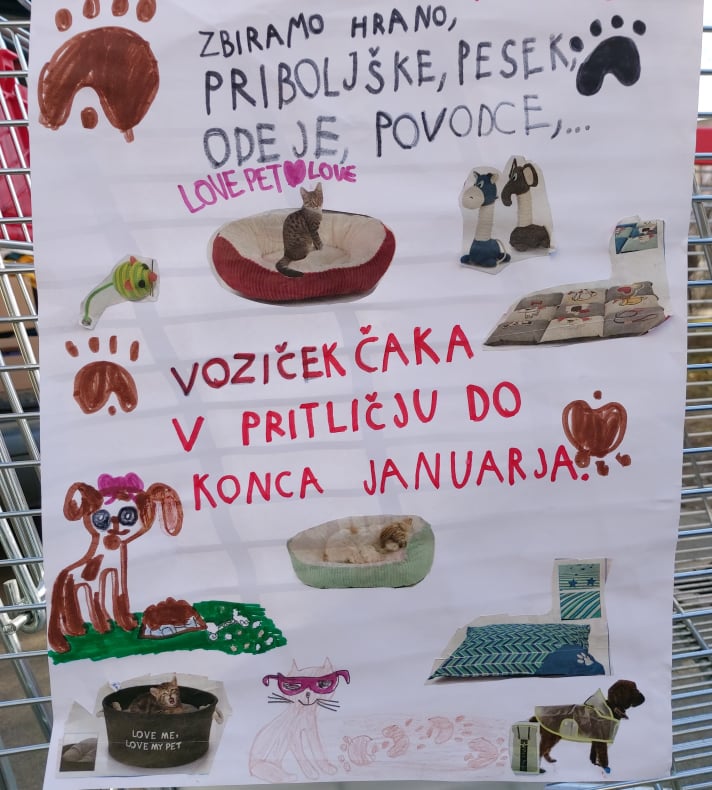 ZBIRAMO HRANO,
PRIBOLJŠKE, PESEK,
ODEJE, POVODCE,...
LOVE PET LOVE
VOZIČEK ČAKA
V PRITLIČJU DO
KONCA JANUARJA.
LOVE ME,
LOVE MY PET